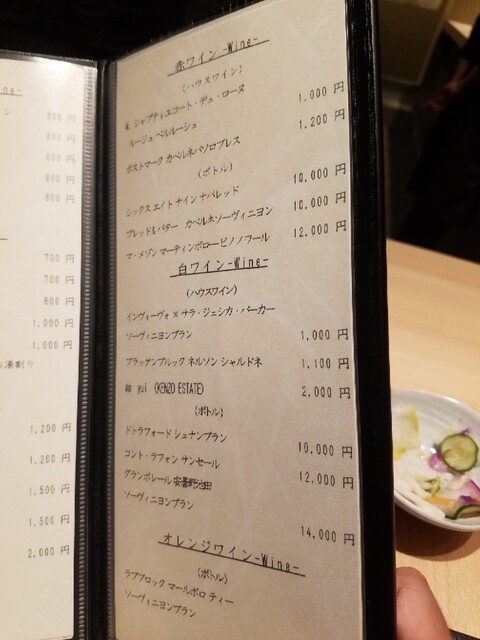 赤ワイン -Wine-
(ハウスワイン)
M シャプティエコート・デュ・ローヌ
ルージュ ベルルーシュ 1,000 円
ポストマーク カベルネパソロブレス 1,200 円
(ボトル)
シックス エイト ナイン ナパレッド 10,000 円
ブレッド&バター カベルネソーヴィニヨン 10,000 円
マ・メゾン マーティンボロー ピノ ノワール 12,000 円
白ワイン-Wine-
(ハウスワイン)
インヴィーヴォ × サラ・ジェシカ・パーカー
ソーヴィニヨンブラン 1,000 円
ブラッケンブルック ネルソン シャルドネ 1,100 円
結 yui (KENZO ESTATE) 2,000 円
(ボトル)
ドトラフォード シュナンブラン 10,000 円
コント・ラフォン サンセール 12,000 円
グランポレール 安曇野池田
ソーヴィニヨンブラン 14,000 円
オレンジワイン-Wine-
(ボトル)
ラブブロック マールボロ ティー
ソーヴィニヨンブラン
ne-
ン 800 円
800 円
800 円
800 円
800 円
700 円
700 円
800 円
1,000 円
1,000 円
お湯割り
1,200 円
1,200 円
1,500 円
1,500 円
2,000 円